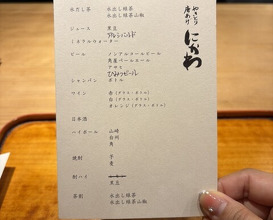 やきとり
唐あげ
にかわ
水だし茶 水出し緑茶
水出し緑茶山椒
ジュース 黒豆
ミネラルウォーター
ビール ノンアルコールビール
黒星ベールビール
アサヒ
ひみつビール
シャンパン ボトル
ワイン 赤(グラス・ボトル)
白(グラス・ボトル)
オレンジ(グラス・ボトル)
日本酒
ハイボール 山崎
白州
角
焼酎 芋
麦
酎ハイ
黒豆
茶割 水出し緑茶
水出し緑茶山椒